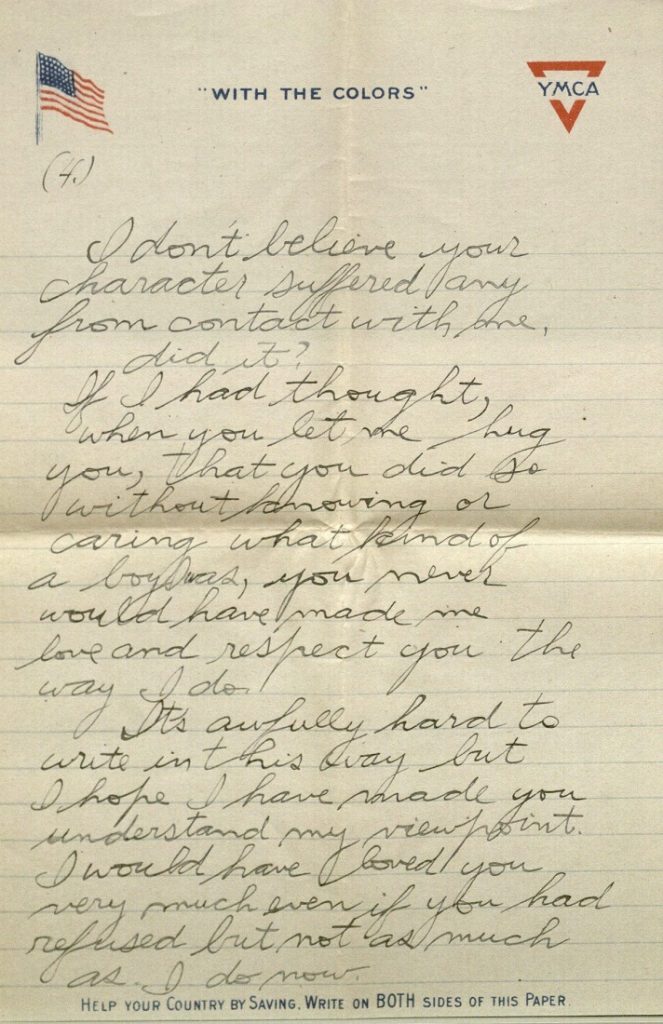 "WITH THE COLORS"
YMCA
(4.)
I don't believe your
character suffered any
from contact with me,
did it?
If I had thought,
when you let me hug
you, that you did so
without knowing or
caring what kind of
a boy I was, you never
would have made me
love and respect you the
way I do.
It's awfully hard to
write in this way but
I hope I have made you
understand my viewpoint.
I would have loved you
very much even if you had
refused but not as much
as I do now.
HELP YOUR COUNTRY BY SAVING. WRITE ON BOTH SIDES OF THIS PAPER.